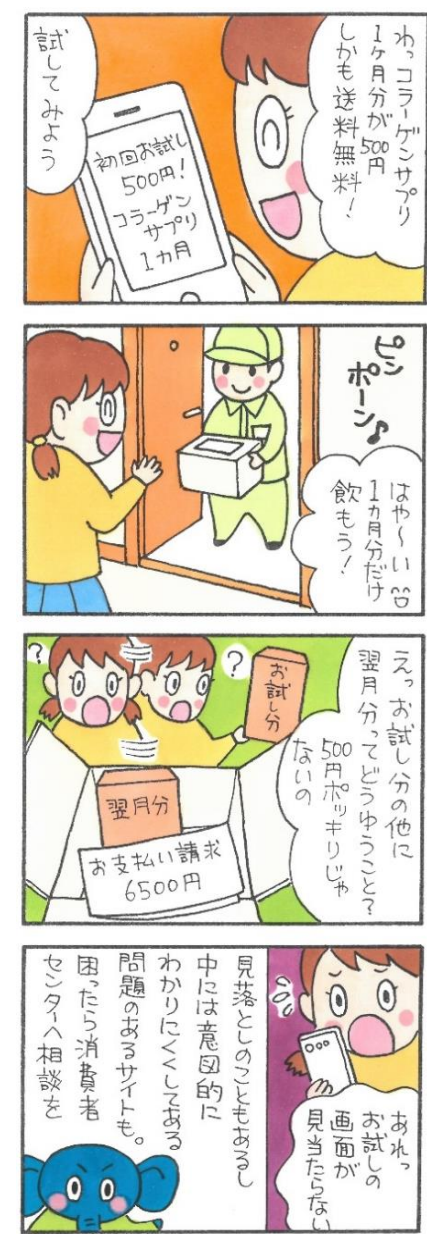 わっコラーゲンサプリ
1ヶ月分が500円
しかも送料無料！
初回お試し
500円！
コラーゲン
サプリ
1カ月
試してみよう
ピン
ポーン♪
はや〜い
1カ月分だけ
飲もう！
えっお試し分の他に
翌月分ってどうゆうこと？
500円ポッキリじゃ
ないの
?
お試し分
?
翌月分
お支払い請求
6500円
あれっ
お試しの
画面が
見当たらない
見落としのこともあるし
中には意図的に
わかりにくくしてある
問題のあるサイトも。
困ったら消費者
センターへ相談を